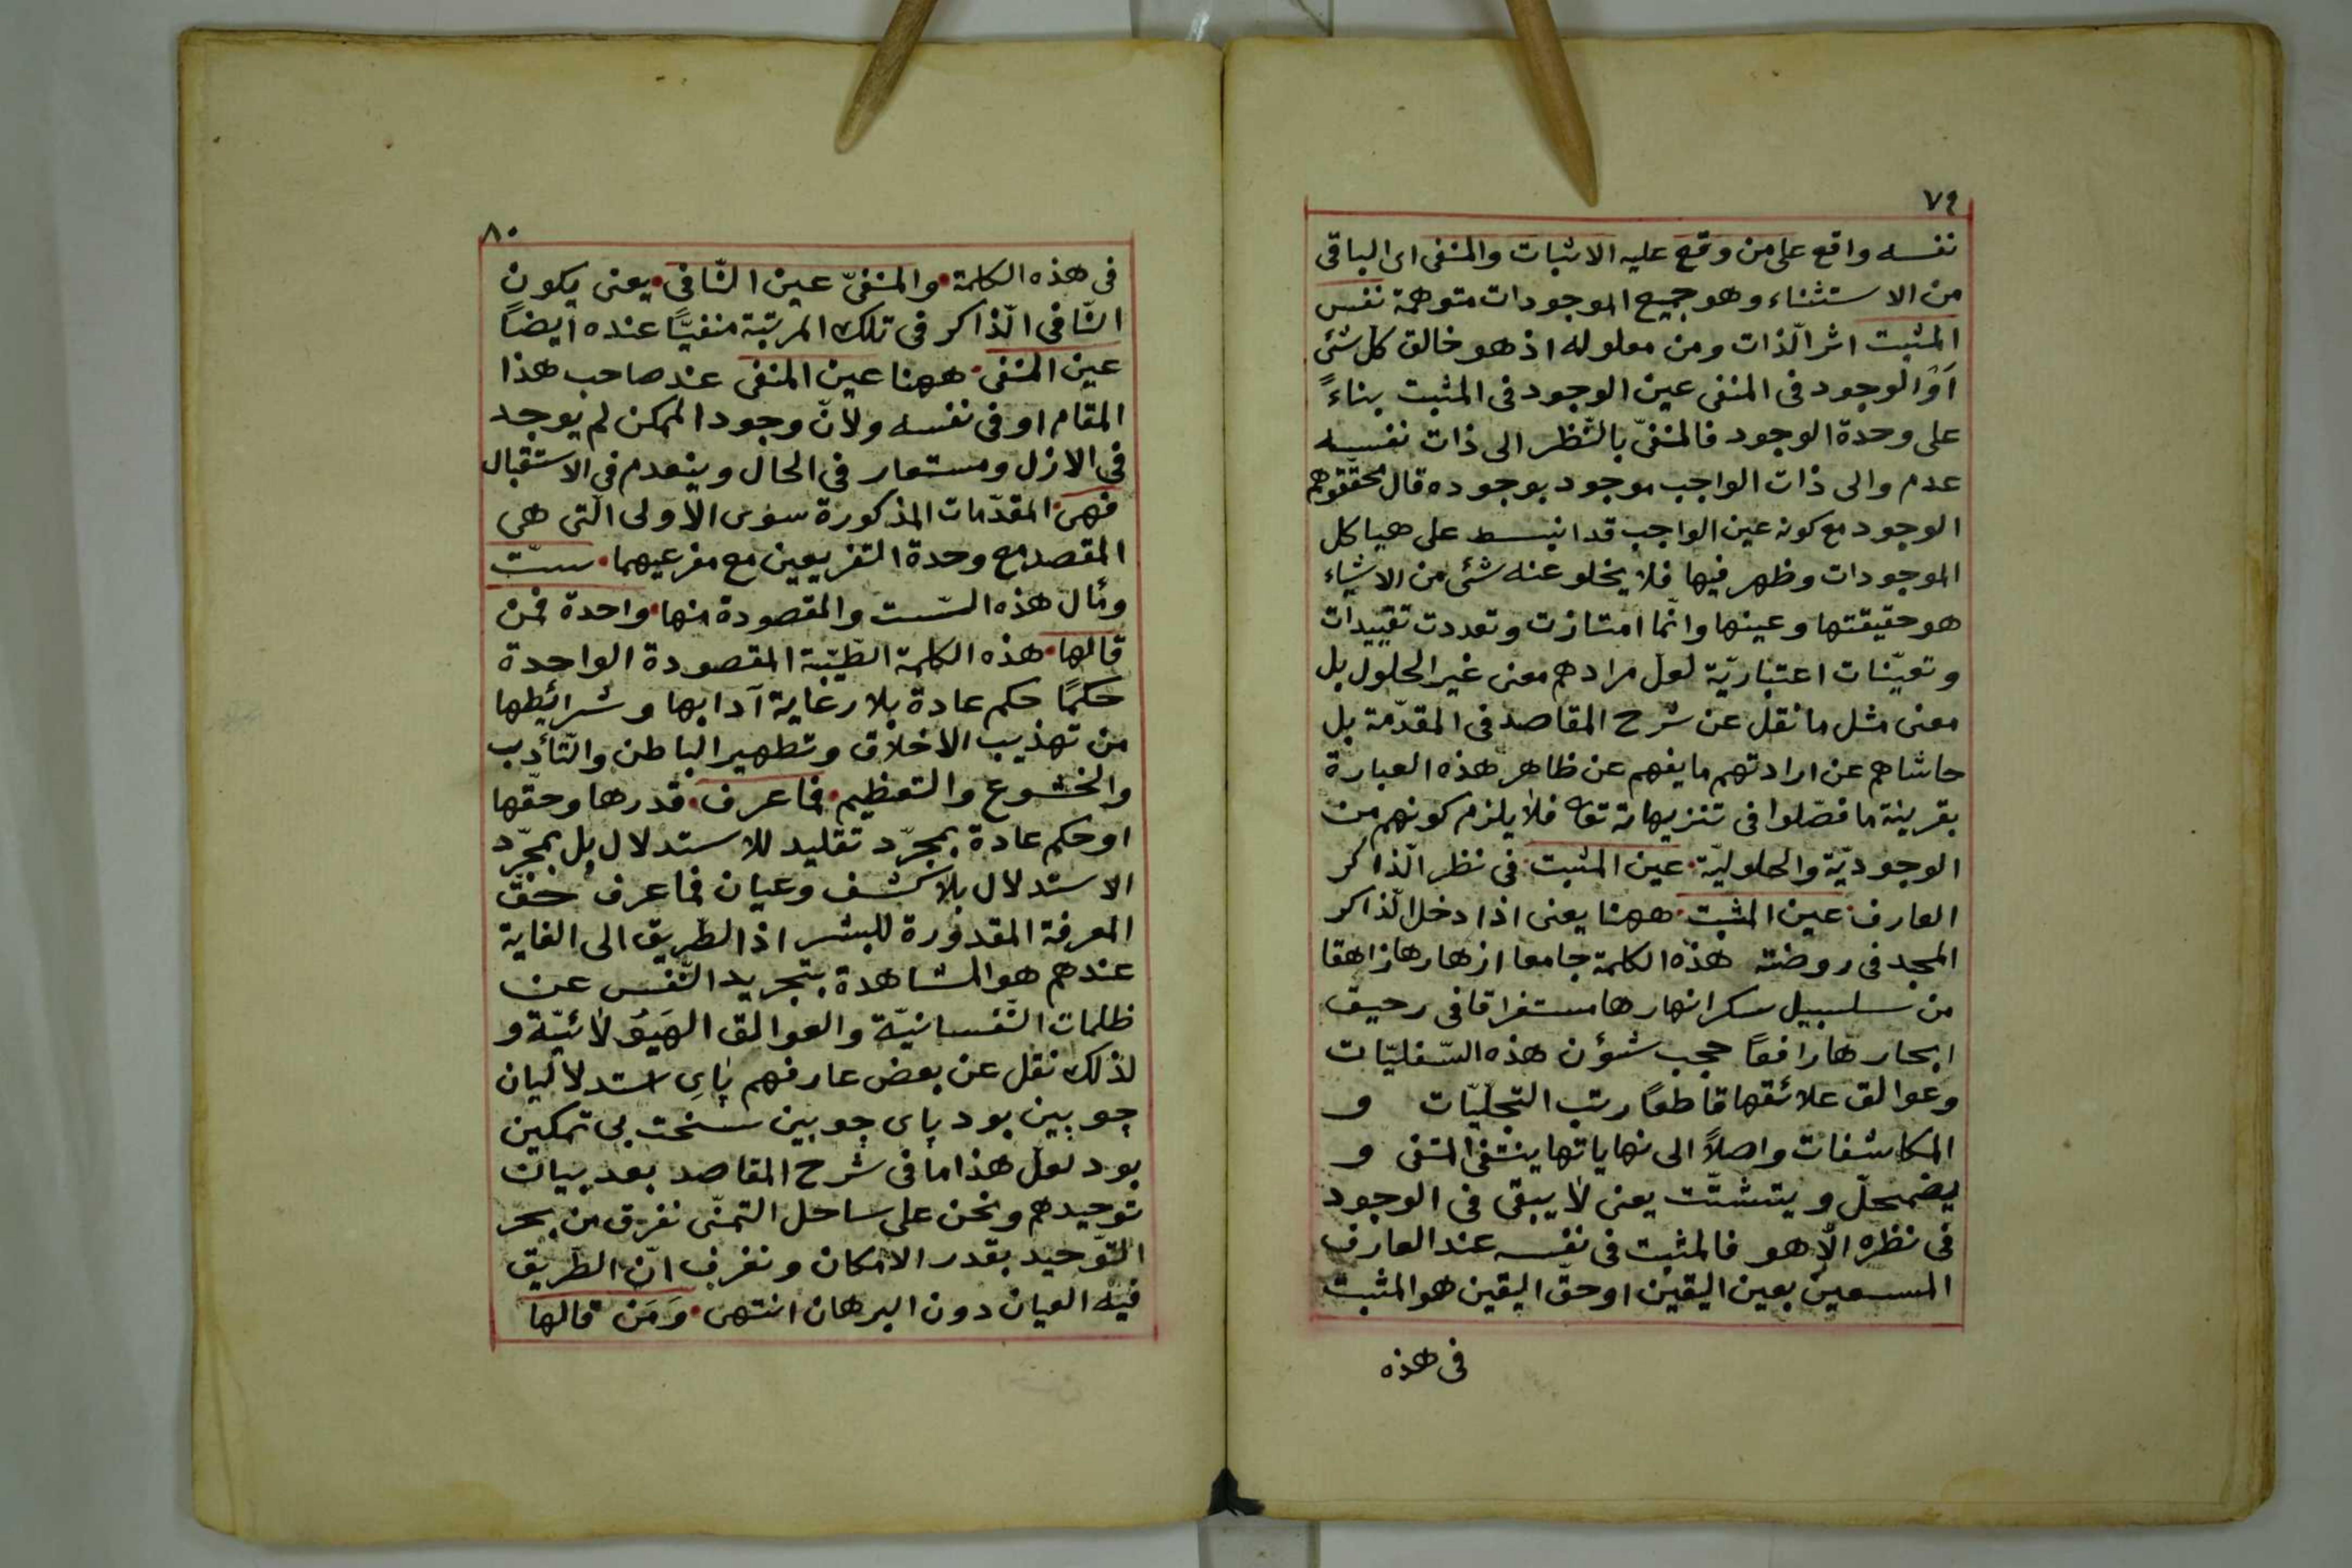 ٧٩
نفسه واقع على من وقع عليه الاثبات والمنفى اى الباقى
من الاستثناء وهو جميع الموجودات متوهمة نفس
المثبت اثر الّذات ومن معلوله اذ هو خالق كل شئ
اَوْ الوجود فى المنفى عين الوجود فى المثبت بناءً
على وحدة الوجود فالمنفىّ بالنّظر الى ذات نفسه
عدم والى ذات الواجب موجود بوجوده قال محققوهم
الوجود مع كونه عين الواجب قد انبسط على هياكل
الموجودات وظهر فيها فلا يخلو عنه شئ من الاشياء
هو حقيقتها وعينها وانّما امتازت وتعددت تقييدات
وتعيّنات اعتباريّة لعل مرادهم معنى غير الحلول بل
معنى مثل ما نقل عن شرح المقاصد فى المقدّمة بل
حاشاهم عن ارادتهم ما يفهم عن ظاهر هذه العبارة
بقرينة ما فصّلوا فى تنزيهاته تع فلا يلزم كونهم من
الوجوديّة والحلوليّة عين المثبت فى نظر الّذاكر
العارف عين المثبت ههنا يعنى اذا دخل الّذاكر
المجد فى روضته هذه الكلمة جامعا ازهارها زاهقا
من سلسبيل سكر انهارها مستغراقا فى رحيق
ابحارها رافعًا حجب شؤن هذه السّفليّات
وعوالق علائقها قاطعًا رتب التجلّيّات و
المكاشفات واصلاً الى نهاياتها ينتفى المنفى و
يضمحلّ ويتشتّت يعنى لا يبقى فى الوجود
فى نظره الّا هو فالمثبت فى نفسه عند العارف
المسعين بعين اليقين او حقّ اليقين هو المثبت
فى هذه
٨٠
فى هذه الكلمة والمنفىّ عين النّافى يعنى يكون
النّافى الّذاكر فى تلك المرتبة منفيًّا عنده ايضاً
عين المنفى ههنا عين المنفى عند صاحب هذا
المقام او فى نفسه ولانّ وجود الممكن لم يوجد
فى الازل ومستعار فى الحال وينعدم فى الاستقبال
فهى المقدّمات المذكورة سوى الاولى الّتى هى
المقصد مع وحدة التفريعين مع مفرعيهما ستّ
ومأل هذه السّت والمقصودة منها واحدة فمن
قالها هذه الكلمة الطّيّبة المقصودة الواحدة
حكمًا حكم عادة بلا رعاية آدابها وشرائطها
من تهذيب الاخلاق وتطهير الباطن والتّأدّب
والخشوع والتعظيم فما عرف قدرها وحقّها
او حكم عادة بمجرّد تقليد للاستدلال بل بمجرّد
الاستدلال بلا كشف وعيان فما عرف حقّ
المعرفة المقدورة للبشر اذ الطّريق الى الغاية
عندهم هو المشاهدة بتجريد النّفس عن
ظلمات النّفسانيّة والعوالق الهَيُولَائيّة و
لذلك نقل عن بعض عارفهم پاىِ استدلاليان
چوبين بود پاى چوبين سخت بى تمكين
بود لعل هذا ما فى شرح المقاصد بعد بيان
توحيدهم ونحن على ساحل التمنّى نغرق من بحر
التّوحيد بقدر الامكان ونغرف انّ الطّريق
فيه العيان دون البرهان انتهى وَمَن قالها